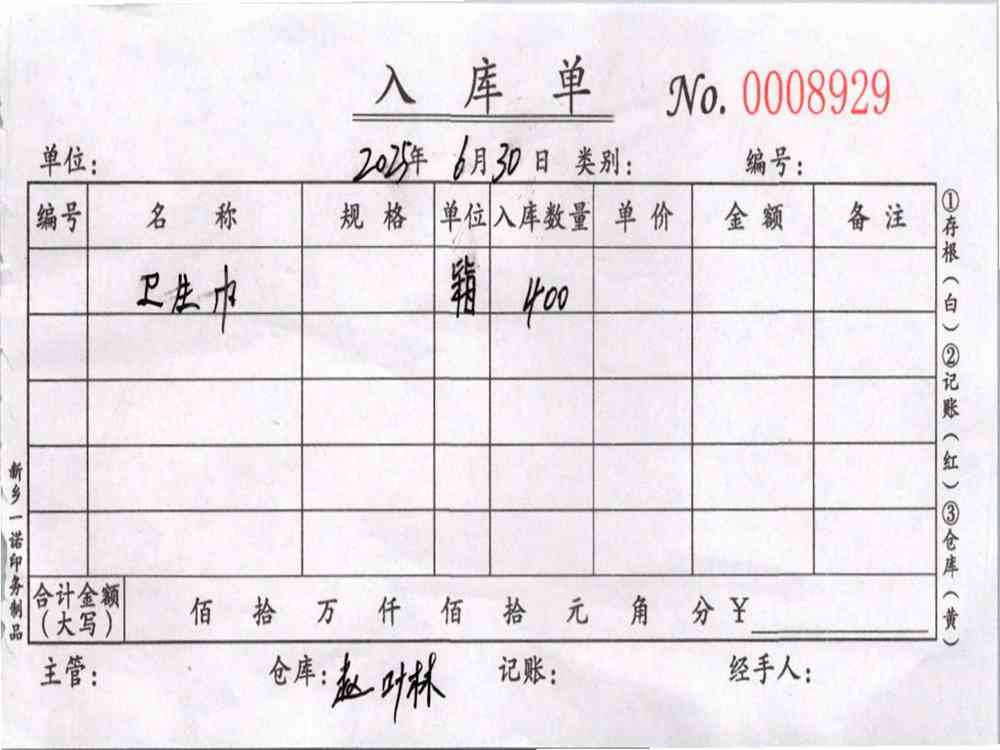 入库单 No. 0008929
单位： 2025年 6月30日 类别： 编号：
编号 名称 规格 单位 入库数量 单价 金额 备注
卫生巾 箱 400
合计金额（大写） 佰 拾 万 仟 佰 拾 元 角 分 ￥
主管： 仓库：赵叶林 记账： 经手人：
①存根（白）②记账（红）③仓库（黄）
新乡一诺印务制品